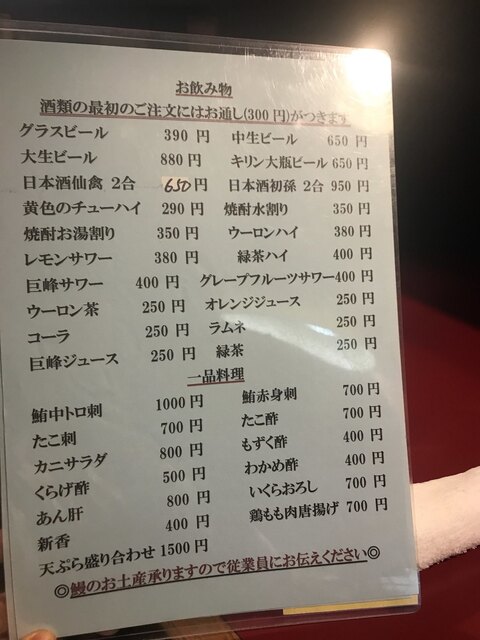 お飲み物
酒類の最初のご注文にはお通し(300円)がつきます
グラスビール 390 円 中生ビール 650 円
大生ビール 880 円 キリン大瓶ビール 650 円
日本酒仙禽 2合 650 円 日本酒初孫 2合 950 円
黄色のチューハイ 290 円 焼酎水割り 350 円
焼酎お湯割り 350 円 ウーロンハイ 380 円
レモンサワー 380 円 緑茶ハイ 400 円
巨峰サワー 400 円 グレープフルーツサワー400 円
ウーロン茶 250 円 オレンジジュース 250 円
コーラ 250 円 ラムネ 250 円
巨峰ジュース 250 円 緑茶 250 円
一品料理
鮪中トロ刺 1000 円 鮪赤身刺 700 円
たこ刺 700 円 たこ酢 700 円
カニサラダ 800 円 もずく酢 400 円
くらげ酢 500 円 わかめ酢 400 円
あん肝 800 円 いくらおろし 700 円
新香 400 円 鶏もも肉唐揚げ 700 円
天ぷら盛り合わせ 1500 円
◎鰻のお土産承りますので従業員にお伝えください◎